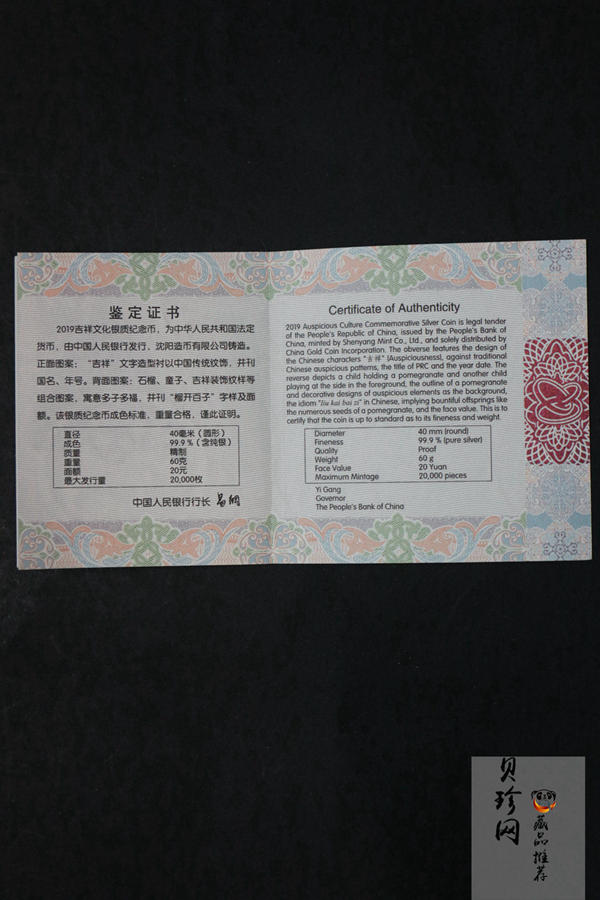 鉴定证书
2019吉祥文化银质纪念币，为中华人民共和国法定
货币，由中国人民银行发行，沈阳造币有限公司铸造。
正面图案：“吉祥”文字造型衬以中国传统纹饰，并刊
国名、年号。背面图案：石榴、童子、吉祥装饰纹样等
组合图案，寓意多子多福，并刊“榴开百子”字样及面
额。该银质纪念币成色标准，重量合格，谨此证明。
直径 40毫米（圆形）
成色 99.9％（含纯银）
质量 精制
重量 60克
面额 20元
最大发行量 20,000枚
中国人民银行行长 易纲
Certificate of Authenticity
2019 Auspicious Culture Commemorative Silver Coin is legal tender
of the People's Republic of China, issued by the People's Bank of
China, minted by Shenyang Mint Co., Ltd., and solely distributed by
China Gold Coin Incorporation. The obverse features the design of
the Chinese characters "吉祥" (Auspiciousness), against traditional
Chinese auspicious patterns, the title of PRC and the year date. The
reverse depicts a child holding a pomegranate and another child
playing at the side in the foreground, the outline of a pomegranate
and decorative designs of auspicious elements as the background,
the idiom "liu kai bai zi" in Chinese, implying bountiful offsprings like
the numerous seeds of a pomegranate, and the face value. This is to
certify that the coin is up to standard as to its fineness and weight.
Diameter 40 mm (round)
Fineness 99.9 % (pure silver)
Quality Proof
Weight 60 g
Face Value 20 Yuan
Maximum Mintage 20,000 pieces
Yi Gang
Governor
The People's Bank of China
贝珍网
藏品推荐